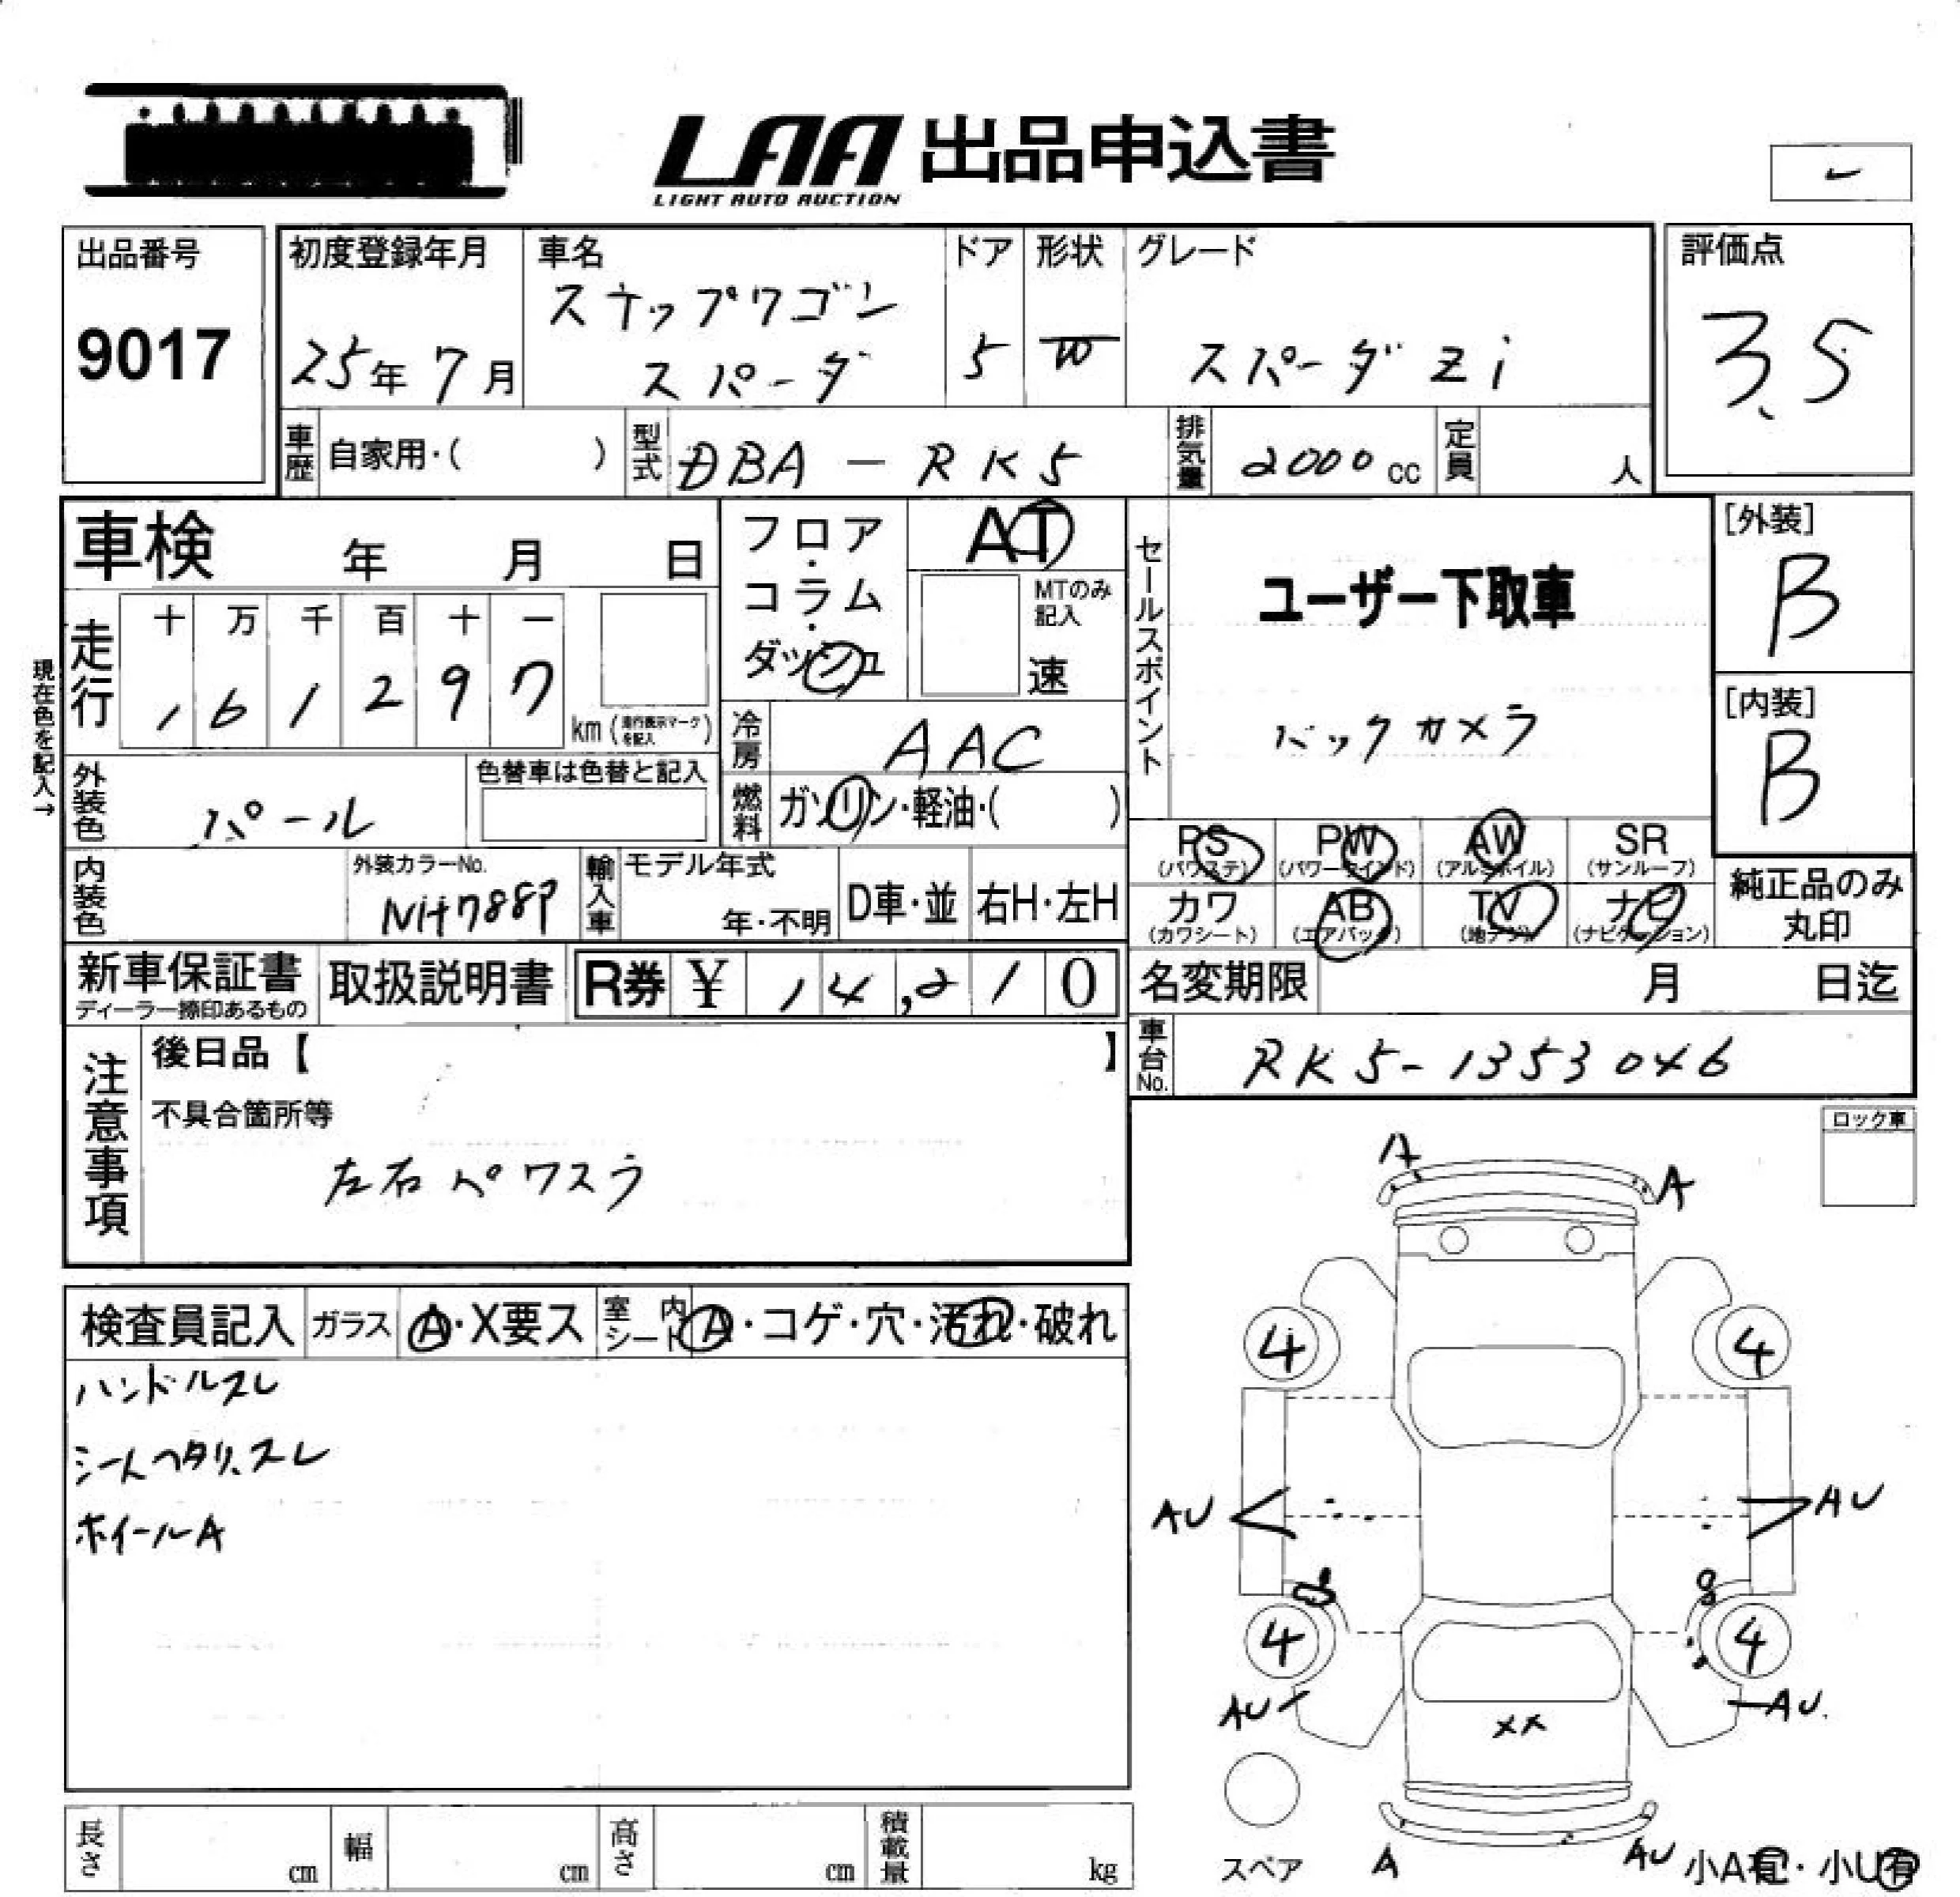 LAA 出品申込書
LIGHT AUTO AUCTION
出品番号
9017
初度登録年月
25年7月
車名
ステップワゴン
スパーダ
ドア
5
形状
W
グレード
スパーダ Zi
評価点
3.5
車歴
自家用・( )
型式
DBA-RK5
排気量
2000cc
定員
人
車検 年 月 日
フロア・コラム・ダッシュ
AT
MTのみ記入
速
セールスポイント
ユーザー下取車
バックカメラ
[外装]
B
[内装]
B
現在色を記入→
走行
十 万 千 百 十 一
1 6 1 2 9 7
km (走行表示マークを記入)
冷房
AAC
外装色
パール
色替車は色替と記入
燃料
ガソリン・軽油・( )
PS (パワステ)
PW (パワーウインド)
AW (アルミホイル)
SR (サンルーフ)
カワ (カワシート)
AB (エアバック)
TV (地デジ)
ナビ (ナビゲーション)
純正品のみ丸印
内装色
外装カラーNo.
NH788P
輸入車
モデル年式
年・不明
D車・並
右H・左H
新車保証書
ディーラー捺印あるもの
取扱説明書
R券 ¥ 14,210
名変期限 月 日迄
車台No.
RK5-1353046
注意事項
後日品【 】
不具合箇所等
左右パワスラ
ロック車
検査員記入
ガラス
A・X要ス
室内シート
A・コゲ・穴・汚れ・破れ
ハンドルスレ
シートヘタリ、スレ
ホイールA
A
A
4
4
AU
AU
4
4
AU
AU
XX
スペア
A
AU
小A有・小U有
長さ cm
幅 cm
高さ cm
積載量 kg